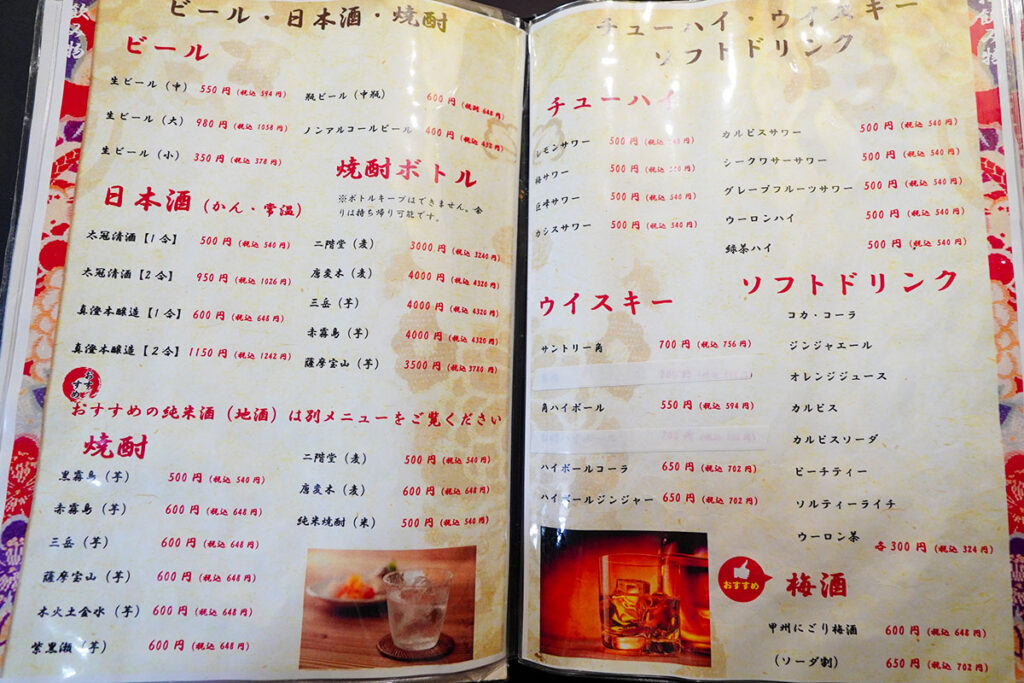 ビール・日本酒・焼酎
ビール
生ビール（中） 550円（税込 594円）
生ビール（大） 980円（税込 1058円）
生ビール（小） 350円（税込 378円）
瓶ビール（中瓶） 600円（税込 648円）
ノンアルコールビール 400円（税込 432円）
日本酒（かん・常温）
太冠清酒【1合】 500円（税込 540円）
太冠清酒【2合】 950円（税込 1026円）
真澄本醸造【1合】 600円（税込 648円）
真澄本醸造【2合】 1150円（税込 1242円）
焼酎ボトル
※ボトルキープはできません。余
りは持ち帰り可能です。
二階堂（麦） 3000円（税込 3240円）
唐変木（麦） 4000円（税込 4320円）
三岳（芋） 4000円（税込 4320円）
赤霧島（芋） 4000円（税込 4320円）
薩摩宝山（芋） 3500円（税込 3780円）
おすすめ
おすすめの純米酒（地酒）は別メニューをご覧ください
焼酎
黒霧島（芋） 500円（税込 540円）
赤霧島（芋） 600円（税込 648円）
三岳（芋） 600円（税込 648円）
薩摩宝山（芋） 600円（税込 648円）
木火土金水（芋） 600円（税込 648円）
紫黒瀬（芋） 600円（税込 648円）
二階堂（麦） 500円（税込 540円）
唐変木（麦） 600円（税込 648円）
純米焼酎（米） 500円（税込 540円）
チューハイ・ウイスキー
ソフトドリンク
チューハイ
レモンサワー 500円（税込 540円）
梅サワー 500円（税込 540円）
巨峰サワー 500円（税込 540円）
カシスサワー 500円（税込 540円）
カルピスサワー 500円（税込 540円）
シークワサーサワー 500円（税込 540円）
グレープフルーツサワー 500円（税込 540円）
ウーロンハイ 500円（税込 540円）
緑茶ハイ 500円（税込 540円）
ウイスキー
サントリー角 700円（税込 756円）
角ハイボール 550円（税込 594円）
ハイボールコーラ 650円（税込 702円）
ハイボールジンジャー 650円（税込 702円）
ソフトドリンク
コカ・コーラ
ジンジャエール
オレンジジュース
カルピス
カルピスソーダ
ピーチティー
ソルティーライチ
ウーロン茶
各300円（税込 324円）
おすすめ
梅酒
甲州にごり梅酒 600円（税込 648円）
（ソーダ割） 650円（税込 702円）